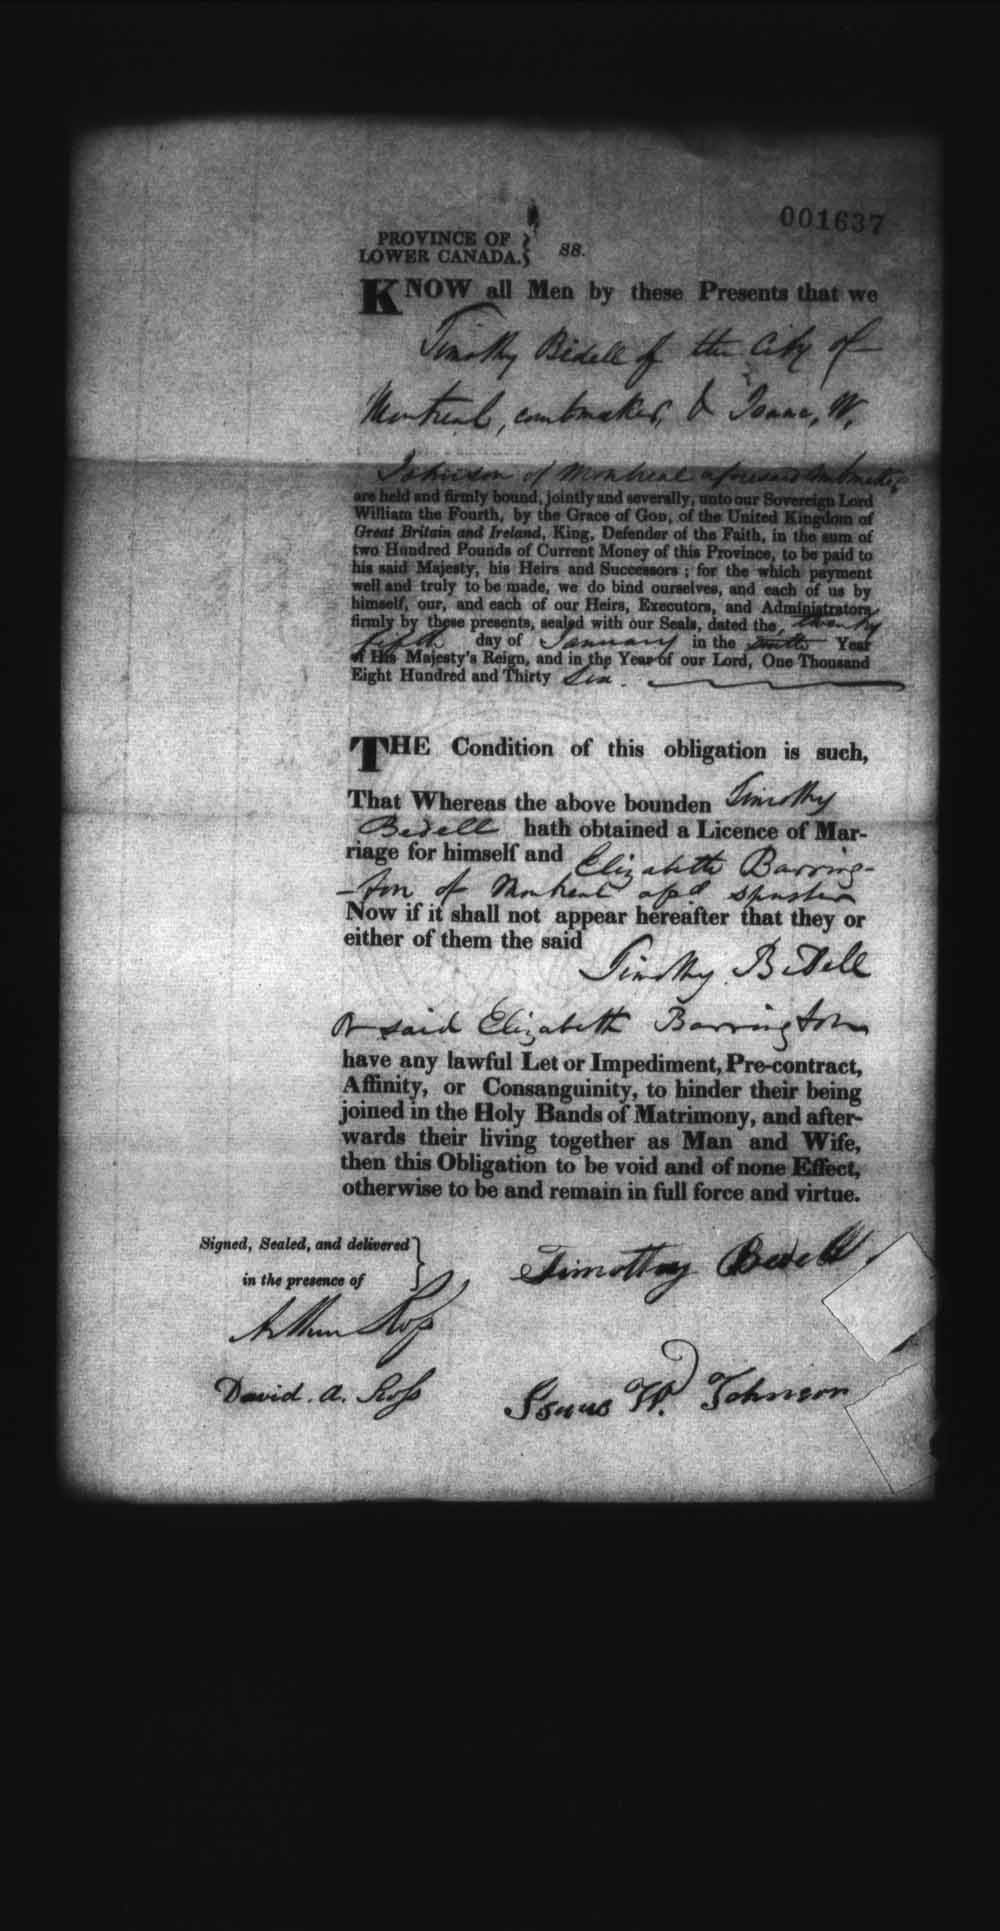 001637
PROVINCE OF
LOWER CANADA. } SS.
KNOW all Men by these Presents that we
Timothy Bedell of the City of
Montreal, combmaker, & Isaac, W,
Johnson of Montreal aforesaid Combmaker,
are held and firmly bound, jointly and severally, unto our Sovereign Lord
William the Fourth, by the Grace of GOD, of the United Kingdom of
Great Britain and Ireland, King, Defender of the Faith, in the sum of
two Hundred Pounds of Current Money of this Province, to be paid to
his said Majesty, his Heirs and Successors ; for the which payment
well and truly to be made, we do bind ourselves, and each of us by
himself, our, and each of our Heirs, Executors, and Administrators
firmly by these presents, sealed with our Seals, dated the, twenty
fifth day of January in the Year
of His Majesty's Reign, and in the Year of our Lord, One Thousand
Eight Hundred and Thirty Six.
THE Condition of this obligation is such,
That Whereas the above bounden Timothy
Bedell hath obtained a Licence of Mar-
riage for himself and Elizabeth Barring-
-ton of Montreal afsd spinster
Now if it shall not appear hereafter that they or
either of them the said
Timothy Bedell
or said Elizabeth Barrington
have any lawful Let or Impediment, Pre-contract,
Affinity, or Consanguinity, to hinder their being
joined in the Holy Bands of Matrimony, and after-
wards their living together as Man and Wife,
then this Obligation to be void and of none Effect,
otherwise to be and remain in full force and virtue.
Signed, Sealed, and delivered
in the presence of
Timothy Bedell
Arthur Ross
David. A. Ross
Isaac W. Johnson